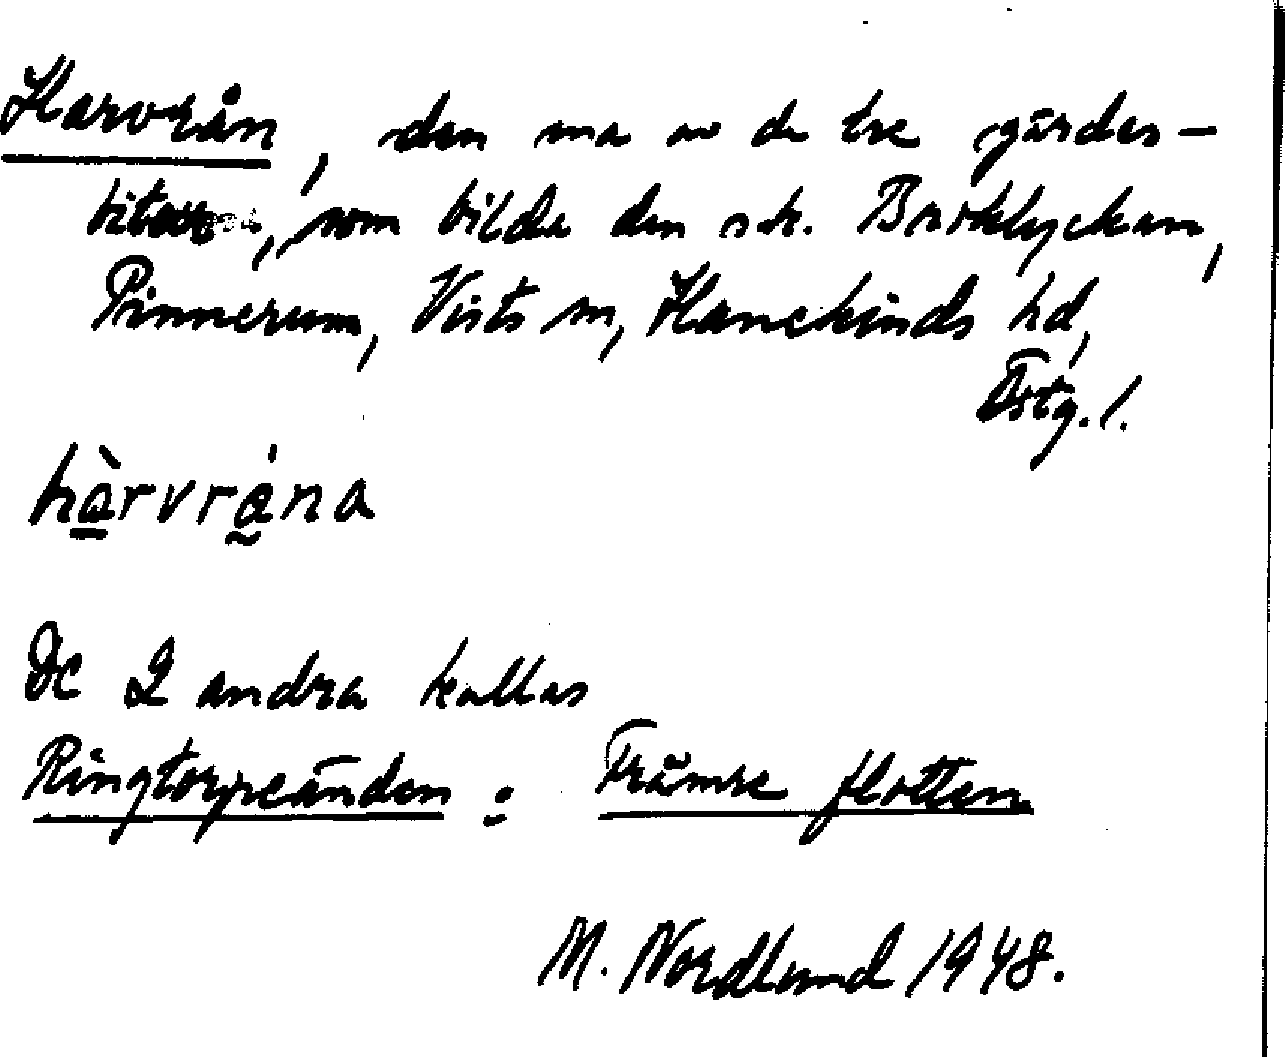 Harvrån, den ena av de tre gärdes-
bitar, som bilda den s.k. Broklyckan,
Pinnerum, Vists sn, Hanekinds hd,
Östg. l.
hàrvrána
De 2 andra kallas
Ringtorpeänden o Främre flotten
M. Nordlund 1948.